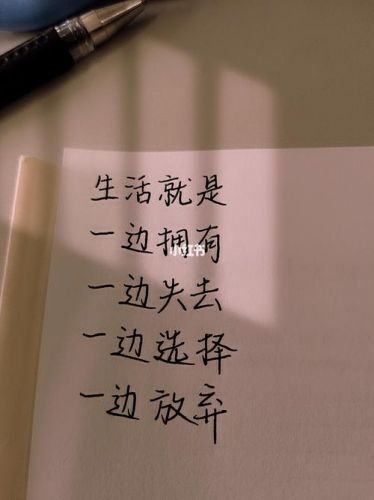 生活就是
一边拥有
小红书
一边失去
一边选择
一边放弃